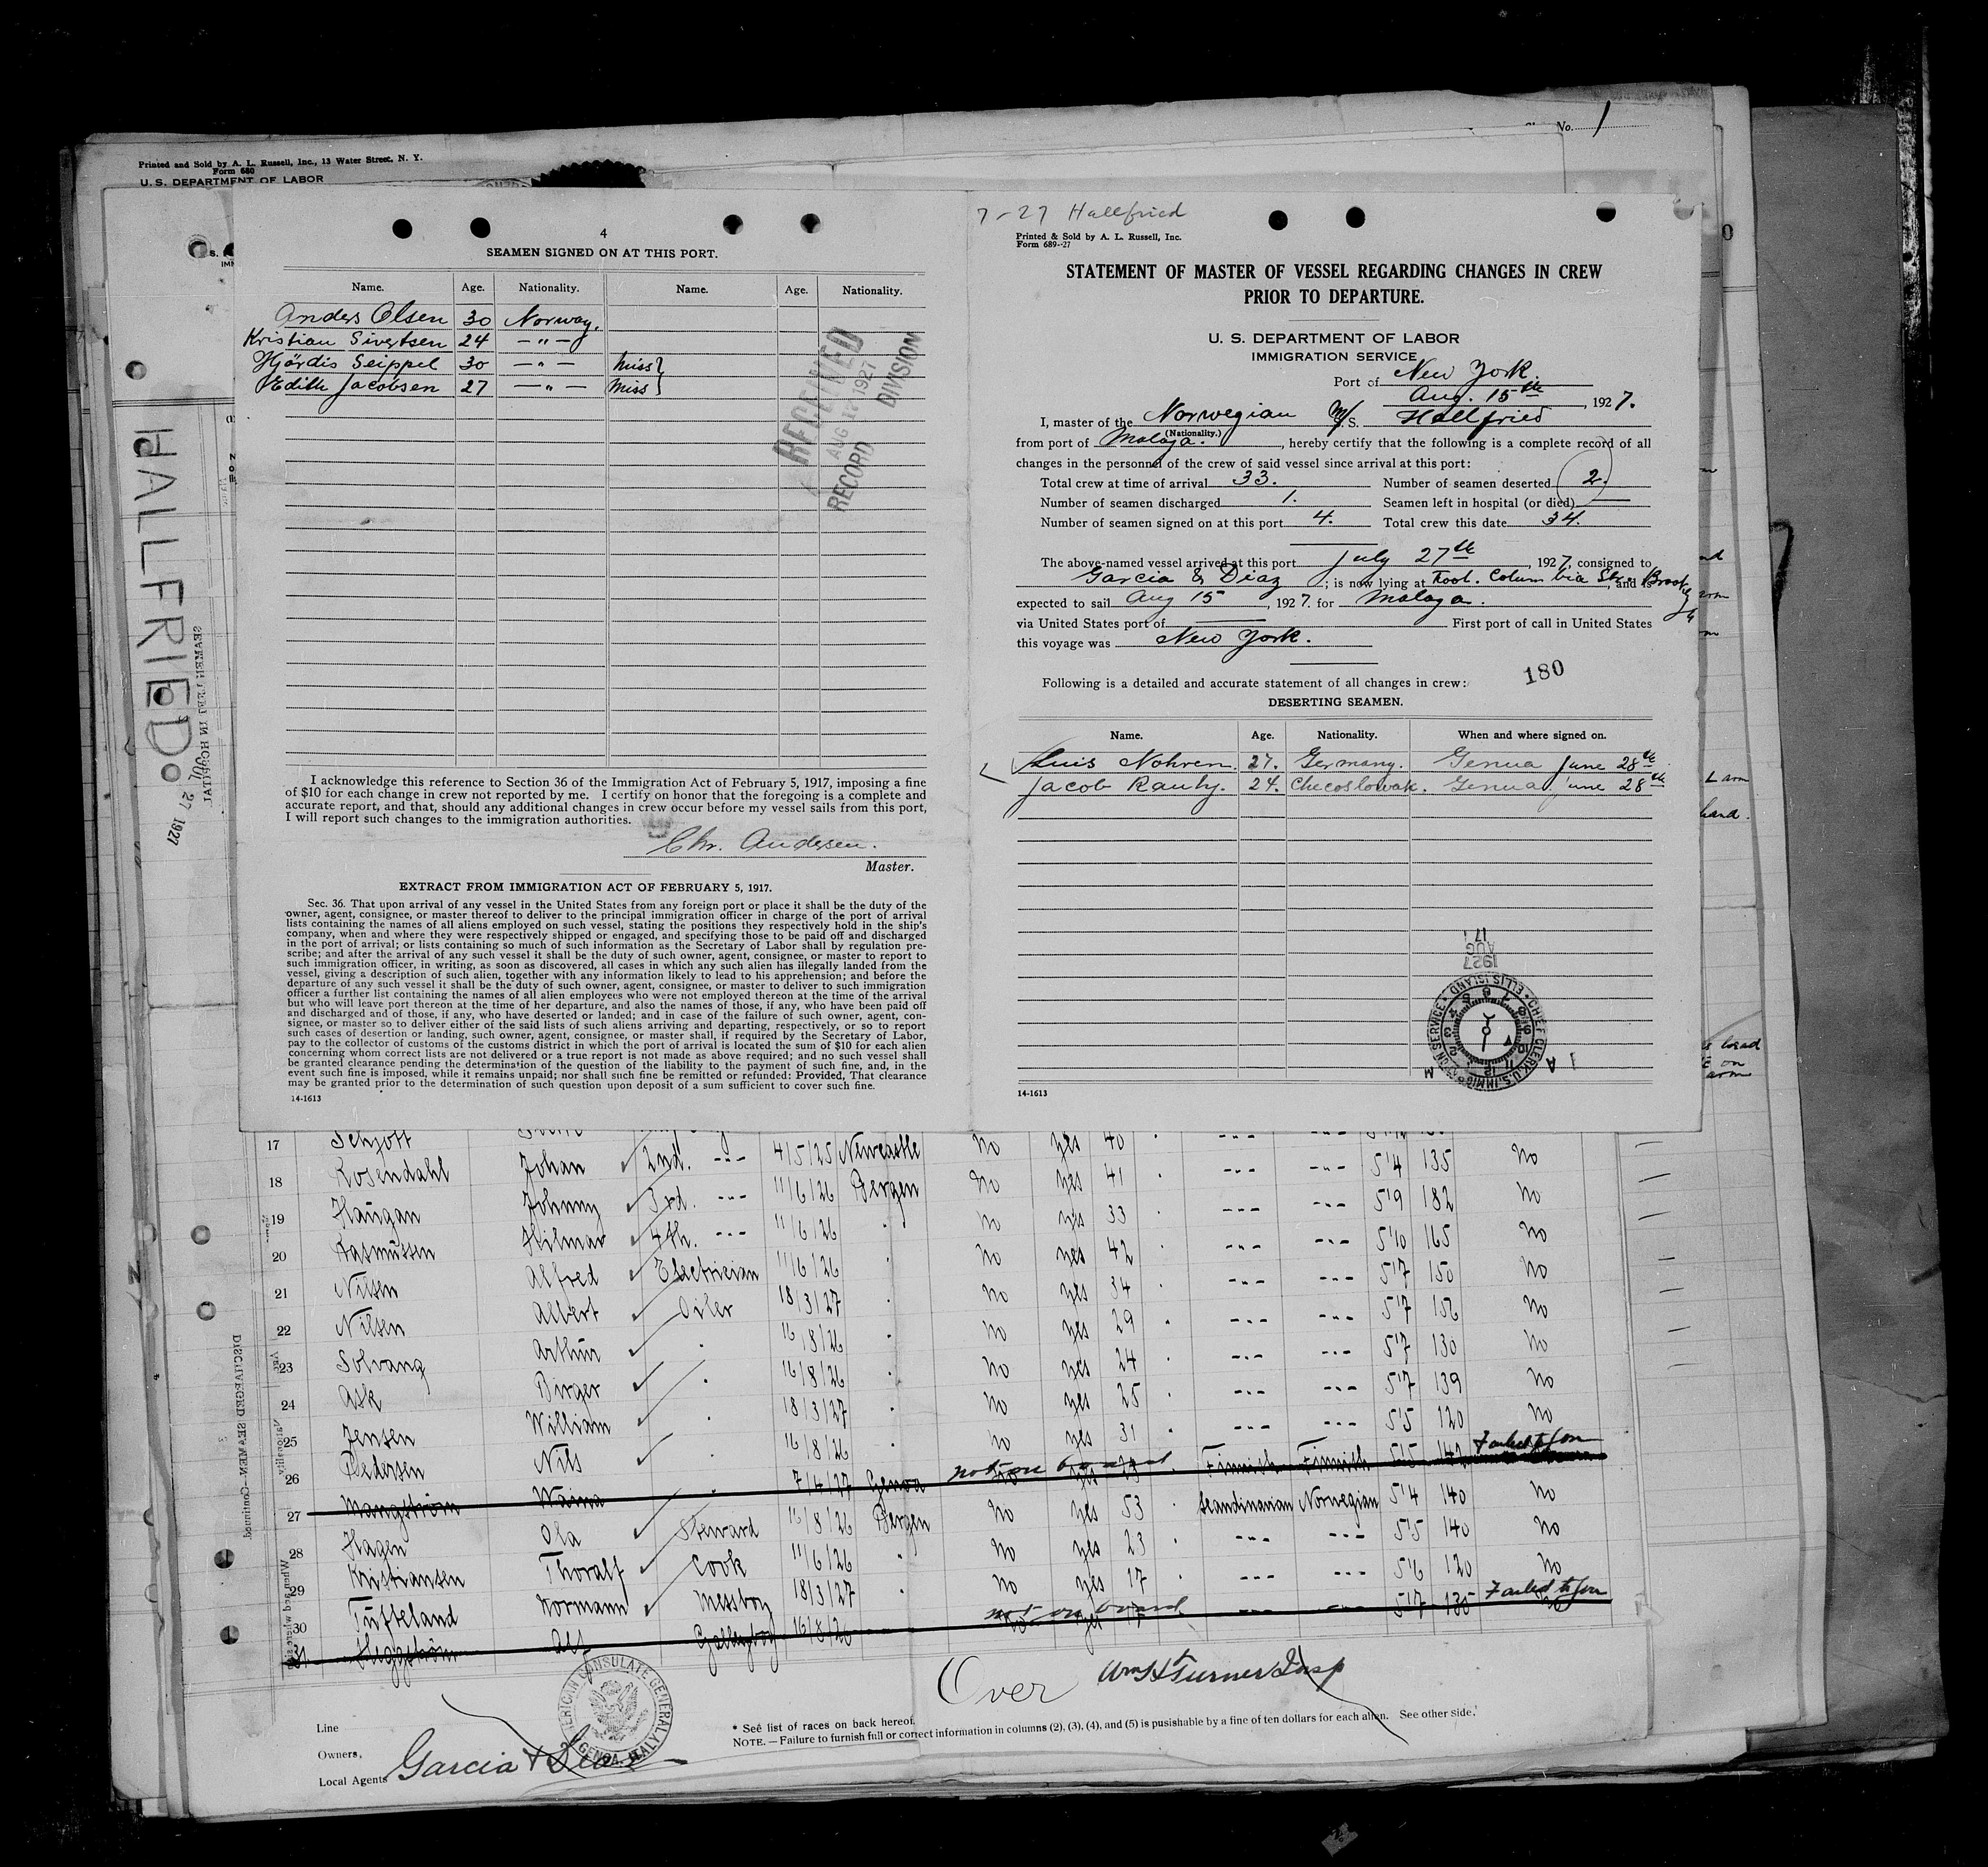 No. 1
Printed and Sold by A. L. Russell, Inc., 13 Water Street, N. Y.
Form 680
U. S. DEPARTMENT OF LABOR
HALLFRIED
JUL 27 1927
SEAMEN LEFT IN HOSPITAL
DISCHARGED SEAMEN—Continued
4
SEAMEN SIGNED ON AT THIS PORT.
Name. Age. Nationality. Name. Age. Nationality.
Anders Olsen 30 Norway.
Kristian Sivertsen 24 — " —
Hjördis Seippel 30 — " — Miss }
Edith Jacobsen 27 — " — Miss }
RECEIVED
AUG 1927
RECORD DIVISION
I acknowledge this reference to Section 36 of the Immigration Act of February 5, 1917, imposing a fine
of $10 for each change in crew not reported by me. I certify on honor that the foregoing is a complete and
accurate report, and that, should any additional changes in crew occur before my vessel sails from this port,
I will report such changes to the immigration authorities.
Chr. Andersen.
Master.
EXTRACT FROM IMMIGRATION ACT OF FEBRUARY 5, 1917.
Sec. 36. That upon arrival of any vessel in the United States from any foreign port or place it shall be the duty of the
owner, agent, consignee, or master thereof to deliver to the principal immigration officer in charge of the port of arrival
lists containing the names of all aliens employed on such vessel, stating the positions they respectively hold in the ship's
company, when and where they were respectively shipped or engaged, and specifying those to be paid off and discharged
in the port of arrival; or lists containing so much of such information as the Secretary of Labor shall by regulation pre-
scribe; and after the arrival of any such vessel it shall be the duty of such owner, agent, consignee, or master to report to
such immigration officer, in writing, as soon as discovered, all cases in which any such alien has illegally landed from the
vessel, giving a description of such alien, together with any information likely to lead to his apprehension; and before the
departure of any such vessel it shall be the duty of such owner, agent, consignee, or master to deliver to such immigration
officer a further list containing the names of all alien employees who were not employed thereon at the time of the arrival
but who will leave port thereon at the time of her departure, and also the names of those, if any, who have been paid off
and discharged and of those, if any, who have deserted or landed; and in case of the failure of such owner, agent, con-
signee, or master so to deliver either of the said lists of such aliens arriving and departing, respectively, or so to report
such cases of desertion or landing, such owner, agent, consignee, or master, shall, if required by the Secretary of Labor,
pay to the collector of customs of the customs district in which the port of arrival is located the sum of $10 for each alien
concerning whom correct lists are not delivered or a true report is not made as above required; and no such vessel shall
be granted clearance pending the determination of the question of the liability to the payment of such fine, and, in the
event such fine is imposed, while it remains unpaid; nor shall such fine be remitted or refunded: Provided, That clearance
may be granted prior to the determination of such question upon deposit of a sum sufficient to cover such fine.
14-1613
7-27 Hallfried
Printed & Sold by A. L. Russell, Inc.
Form 689--27
STATEMENT OF MASTER OF VESSEL REGARDING CHANGES IN CREW
PRIOR TO DEPARTURE.
U. S. DEPARTMENT OF LABOR
IMMIGRATION SERVICE
Port of New York.
Aug. 15th, 1927.
I, master of the Norwegian M/S. Hallfried
(Nationality.)
from port of Malaga., hereby certify that the following is a complete record of all
changes in the personnel of the crew of said vessel since arrival at this port:
Total crew at time of arrival 33. Number of seamen deserted 2.
Number of seamen discharged 1. Seamen left in hospital (or died) —
Number of seamen signed on at this port 4. Total crew this date 34.
The above-named vessel arrived at this port July 27th, 1927, consigned to
Garcia & Diaz; is now lying at Foot. Columbia St. Brooklyn, and is
expected to sail Aug 15, 1927. for Malaga.
via United States port of — First port of call in United States
this voyage was New York.
180
Following is a detailed and accurate statement of all changes in crew:
DESERTING SEAMEN.
Name. Age. Nationality. When and where signed on.
Luis Nohren. 27. Germany. Genua June 28th
Jacob Rauhy. 24. Checoslowak. Genua June 28th
17 AUG 1927
CHIEF CLERK, U. S. IMMIGRATION SERVICE • ELLIS ISLAND •
14-1613
17 Schjött
18 Rosendahl Johan 2nd. --- 4/5/25 Newcastle No yes 40 --- ---
19 Haugan Johnny 3rd. --- 11/6/26 Bergen No yes 41 --- --- 5'4 135 No
20 Rasmussen Hilmar 4th. --- 11/6/26 No yes 33 --- --- 5'9 182 No
21 Nilsen Alfred Electrician 11/6/26 No yes 42 --- --- 5'10 165 No
22 Nilsen Albert Oiler 18/3/27 No yes 34 --- --- 5'7 150 No
23 Solvang Arthur 16/8/26 No yes 29 --- --- 5'7 156 No
24 Ask Birger 16/8/26 No yes 24 --- --- 5'7 130 No
25 Jensen William 18/3/27 No yes 25 --- --- 5'7 139 No
26 Pedersen Nils 16/8/26 No yes 31 --- --- 5'5 120 No
27 Mangström Waino 7/4/27 Genoa not on board No yes Finnish Finnish 5'5 142 Failed to join
28 Hagen Ola Steward 16/8/26 Bergen No yes 53 Scandinavian Norwegian 5'4 140 No
29 Kristiansen Thoralf Cook 11/6/26 No yes 23 --- --- 5'5 140 No
30 Tufteland Normann Messboy 18/3/27 No yes 17 --- --- 5'6 120 No
31 Häggström Alf Galleyboy 16/8/26 not on board No yes 17 --- --- 5'7 135 Failed to join
Over Wm H Turner Insp
AMERICAN CONSULATE GENERAL GENOA, ITALY
Line
Owners,
Local Agents Garcia & Diaz
* See list of races on back hereof.
NOTE.—Failure to furnish full or correct information in columns (2), (3), (4), and (5) is punishable by a fine of ten dollars for each alien. See other side.